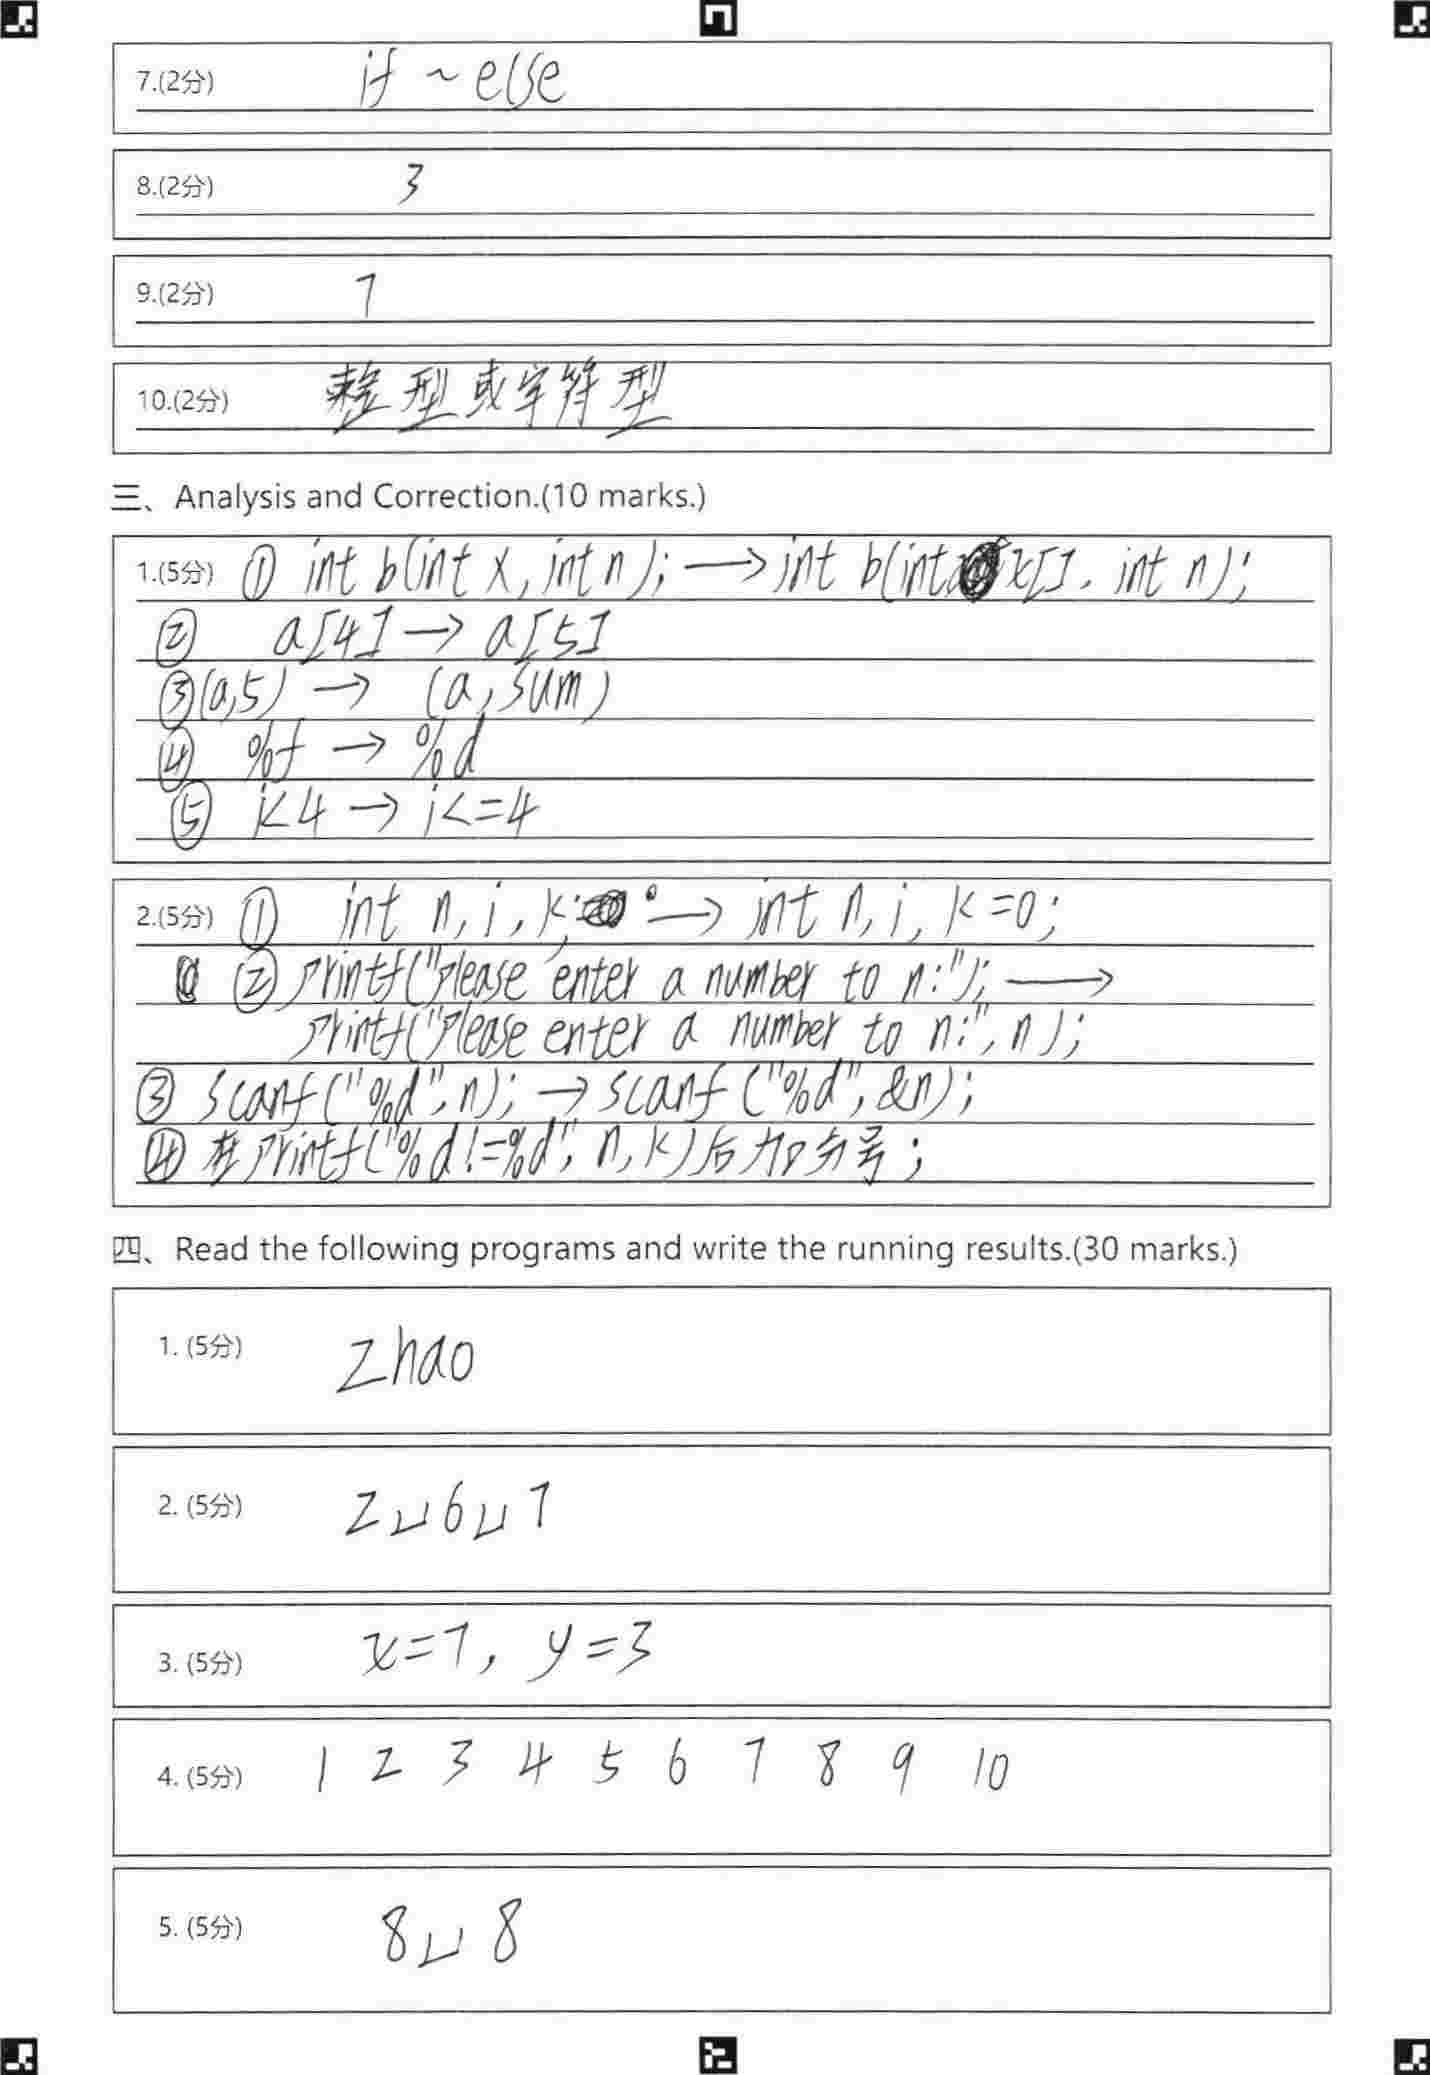 7.(2分) if ~ else
8.(2分) 3
9.(2分) 7
10.(2分) 整型或字符型
三、Analysis and Correction.(10 marks.)
1.(5分) ① int b(int x, int n); → int b(int x[], int n);
② a[4] → a[5]
③ (a,5) → (a, sum)
④ %f → %d
⑤ i<4 → i<=4
2.(5分) ① int n, i, k; → int n, i, k=0;
② printf("Please enter a number to n:"); →
printf("Please enter a number to n:", n);
③ scanf("%d", n); → scanf("%d", &n);
④ 在printf("%d!=%d", n, k)后加分号;
四、Read the following programs and write the running results.(30 marks.)
1. (5分) zhao
2. (5分) 2␣6␣7
3. (5分) x=7, y=3
4. (5分) 1 2 3 4 5 6 7 8 9 10
5. (5分) 8␣8